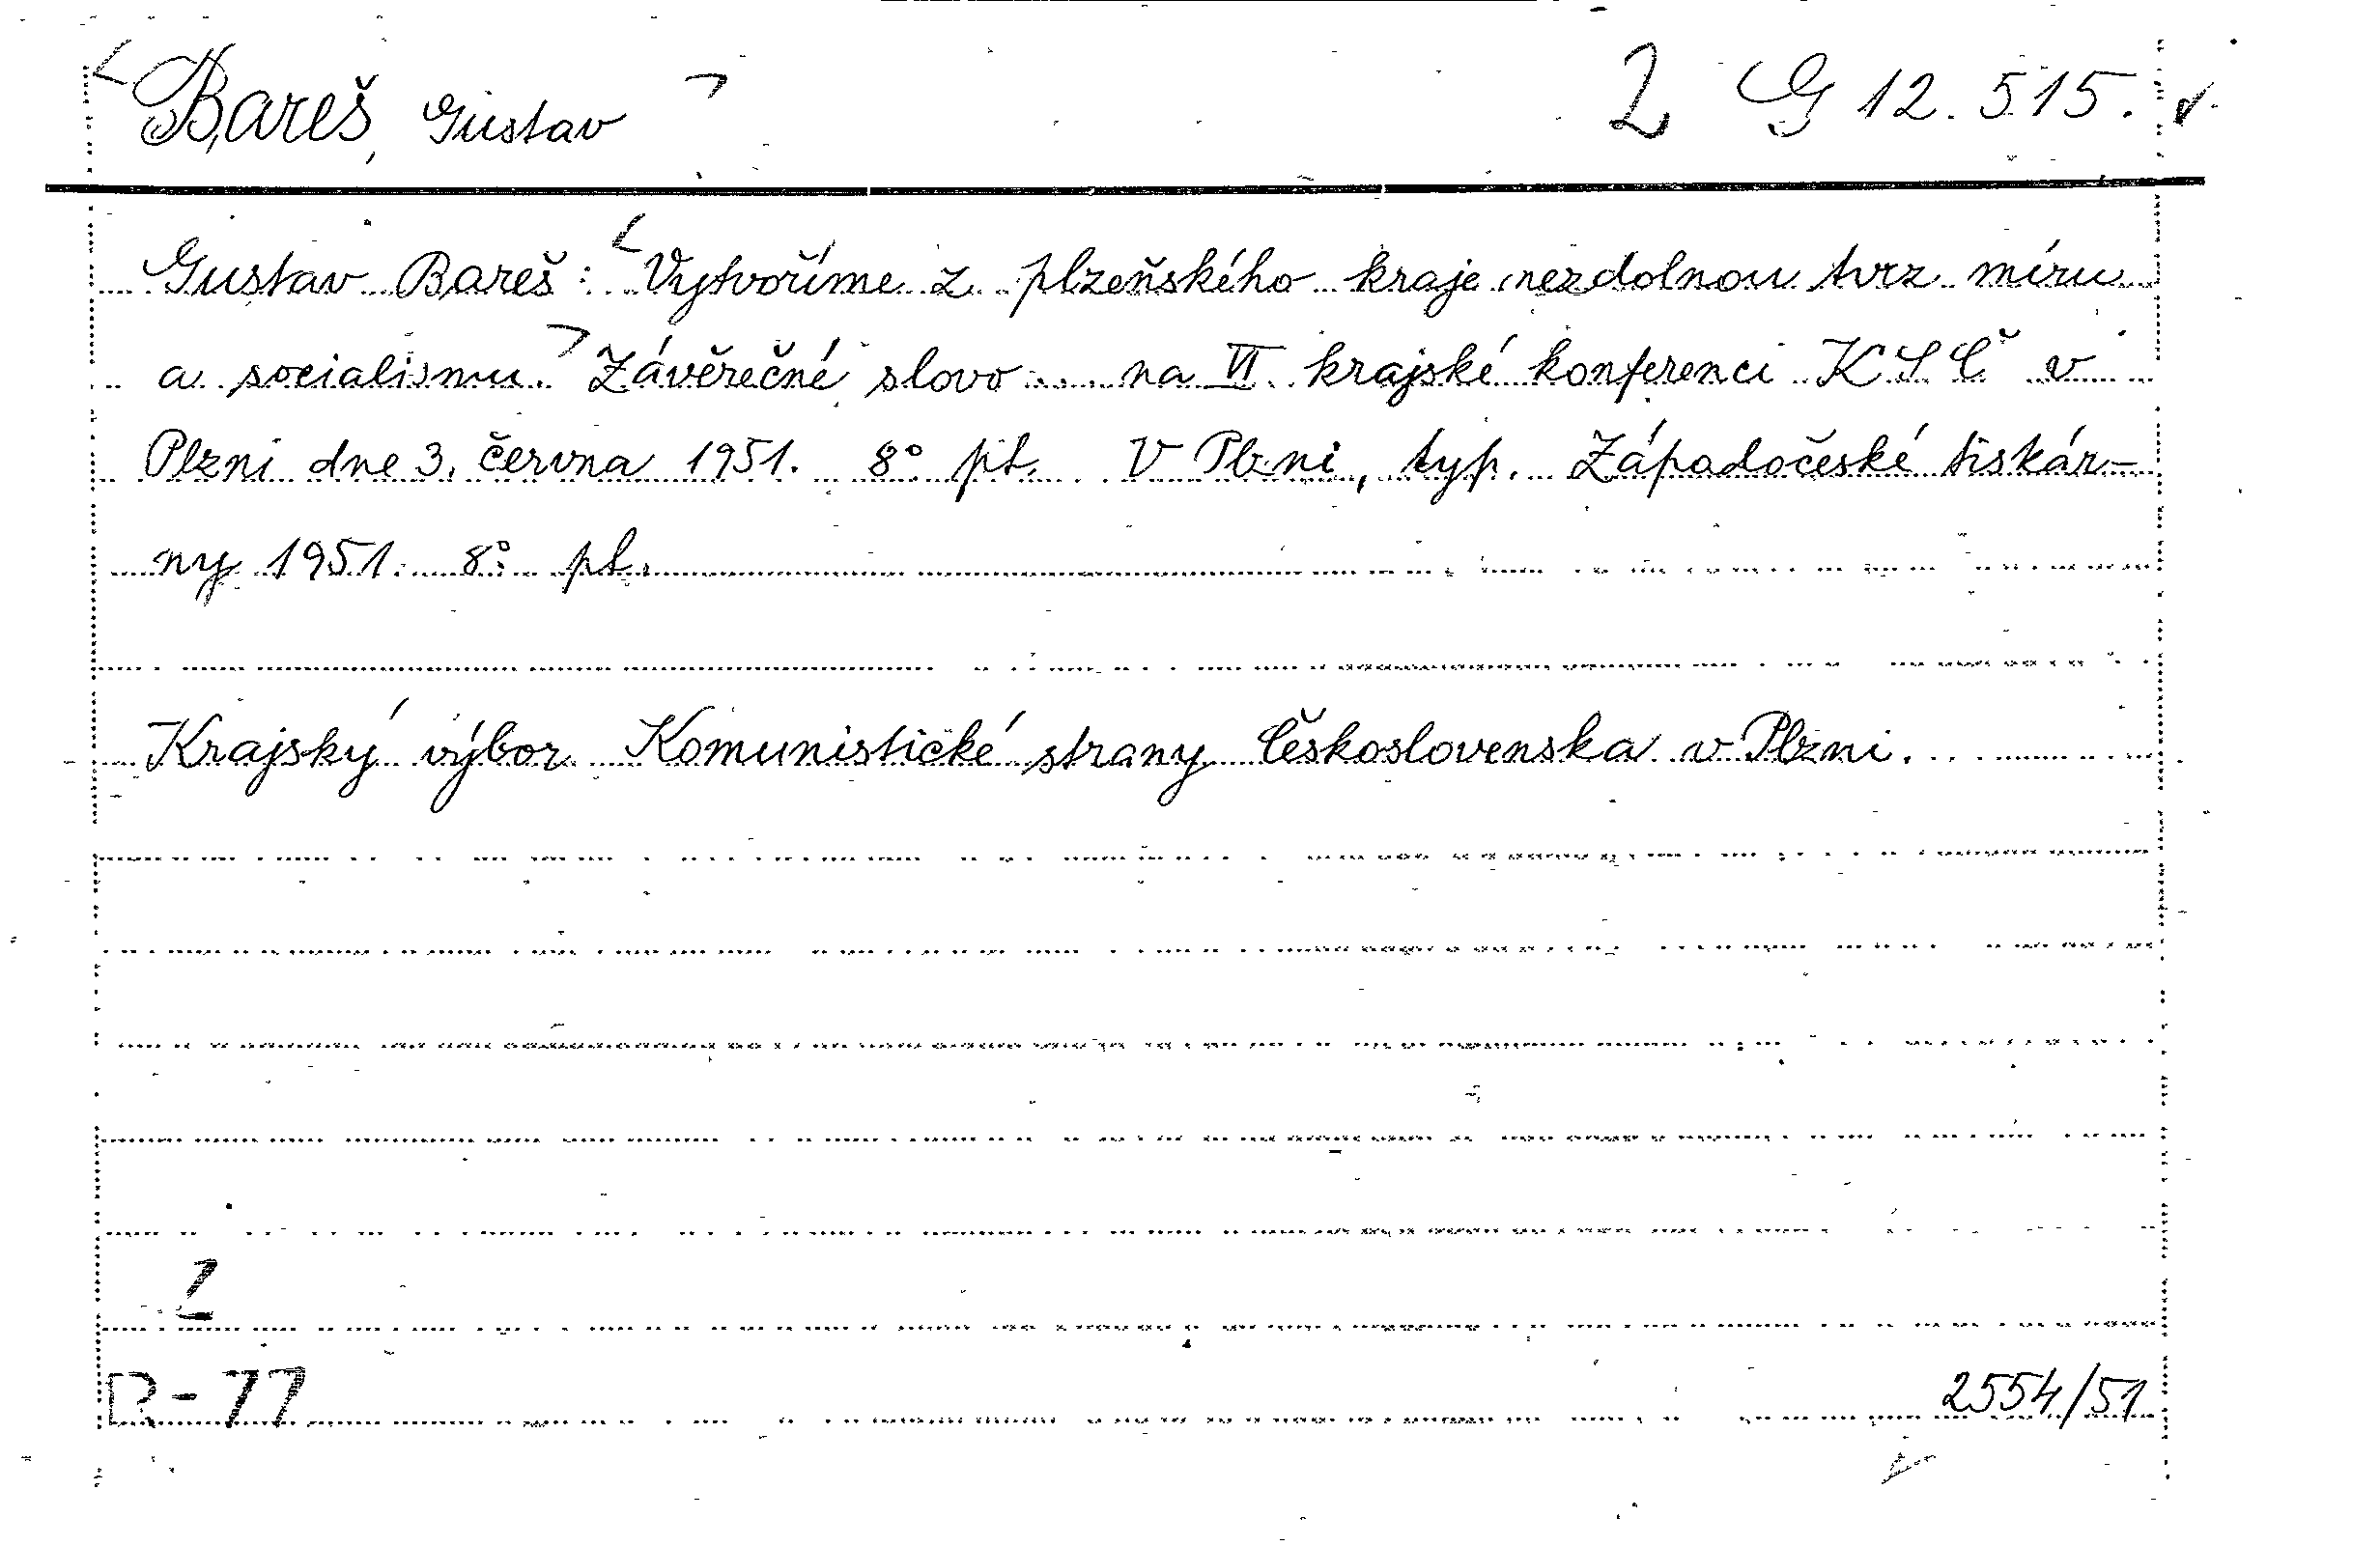 Bareš, Gustav 2 G 12.515.
Gustav Bareš: Vytvoříme z plzeňského kraje nezdolnou tvrz míru
a socialismu. Závěrečné slovo ... na VI. krajské konferenci KSČ v
Plzni dne 3. června 1951. 8° pt. V Plzni, typ. Západočeské tiskár-
ny 1951. 8° pt.
Krajský výbor Komunistické strany Československa v Plzni.
1
R-77 2554/51